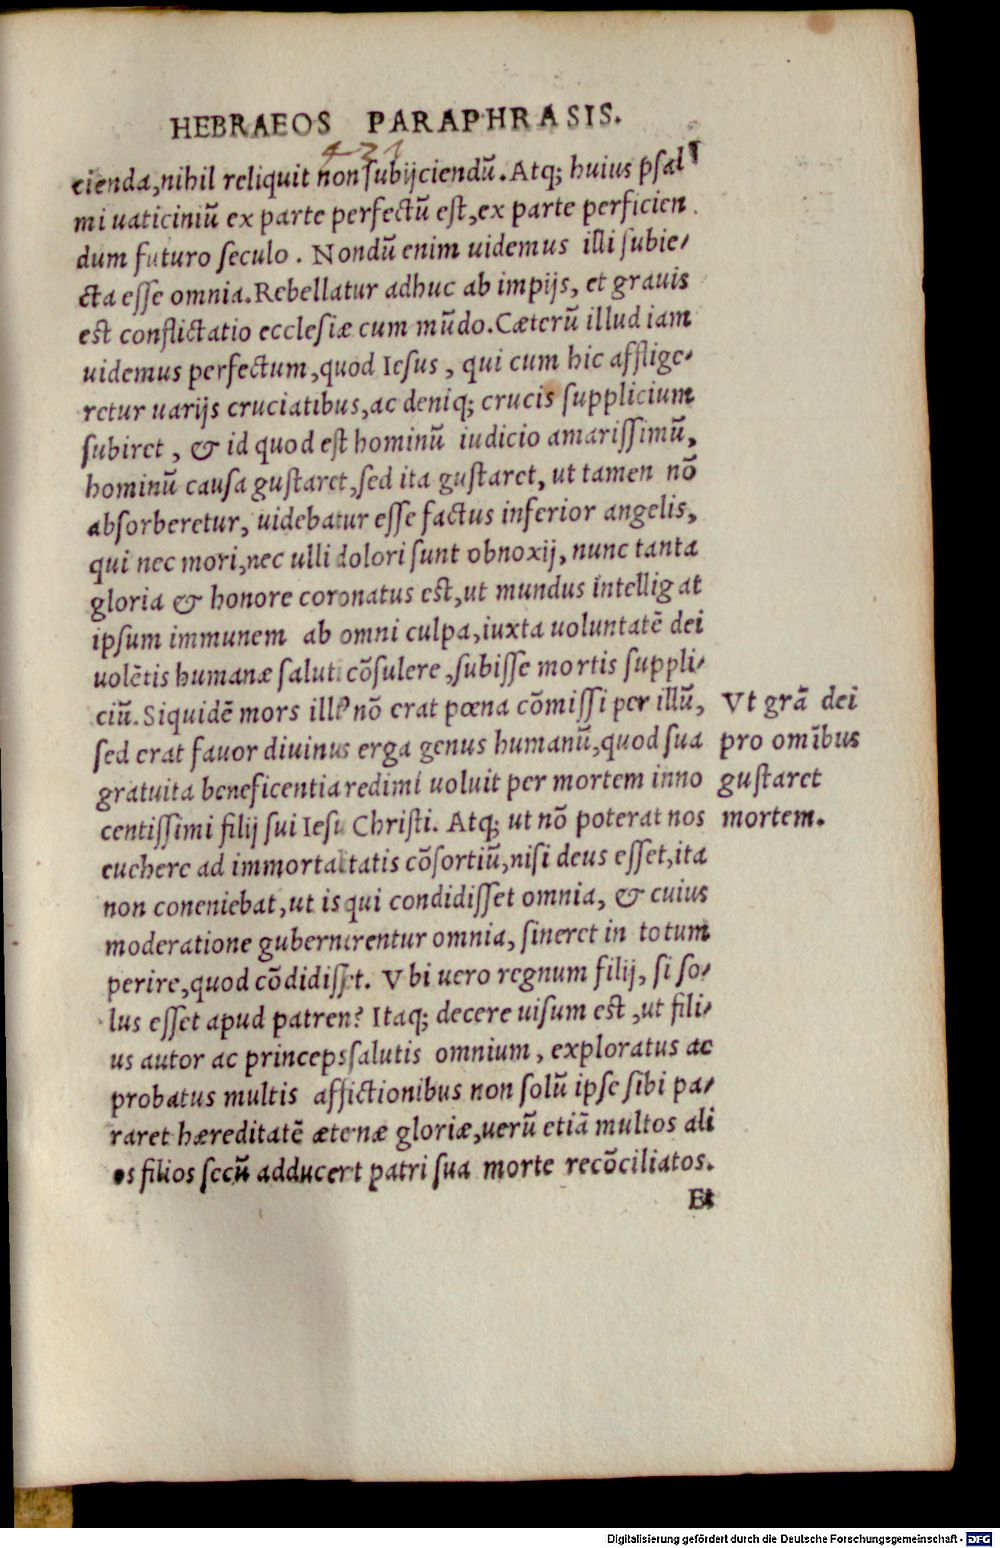 HEBRAEOS PARAPHRASIS.
431
cienda, nihil reliquit non ſubijciendũ. Atq; huius pſal
mi uaticiniũ ex parte perfectũ eſt, ex parte perficien
dum futuro ſeculo. Nondũ enim uidemus illi ſubie/
cta eſſe omnia. Rebellatur adhuc ab impijs, et grauis
est conflictatio eccleſiæ cum mũdo. Cæterũ illud iam
uidemus perfectum, quod Ieſus, qui cum hic afflige/
retur uarijs cruciatibus, ac deniq; crucis ſupplicium
ſubiret, & id quod eſt hominũ iudicio amariſſimũ,
hominũ cauſa guſtaret, ſed ita guſtaret, ut tamen nõ
abſorberetur, uidebatur eſſe factus inferior angelis,
qui nec mori, nec ulli dolori ſunt obnoxij, nunc tanta
gloria & honore coronatus eſt, ut mundus intelligat
ipſum immunem ab omni culpa, iuxta uoluntatẽ dei
uolẽtis humanæ ſaluti cõſulere, ſubiſſe mortis ſuppli/
ciũ. Siquidẽ mors illꝰ nõ erat pœna cõmiſſi per illũ,
ſed erat fauor diuinus erga genus humanũ, quod ſua
gratuita beneficentia redimi uoluit per mortem inno
centiſſimi filij ſui Ieſu Chriſti. Atq; ut nõ poterat nos
euehere ad immortalitatis cõſortiũ, niſi deus eſſet, ita
non coneniebat, ut is qui condidiſſet omnia, & cuius
moderatione gubernarentur omnia, ſineret in totum
perire, quod cõdidiſſet. Vbi uero regnum filij, ſi ſo/
lus eſſet apud patren? Itaq; decere uiſum eſt, ut fili/
us autor ac princeps ſalutis omnium, exploratus ac
probatus multis affictionibus non ſolũ ipſe ſibi pa/
raret hæreditatẽ æternæ gloriæ, uerũ etiã multos ali
os filios ſecũ adducert patri ſua morte recõciliatos.
Et
Vt grã dei
pro omĩbus
guſtaret
mortem.
Digitalisierung gefördert durch die Deutsche Forschungsgemeinschaft - DFG